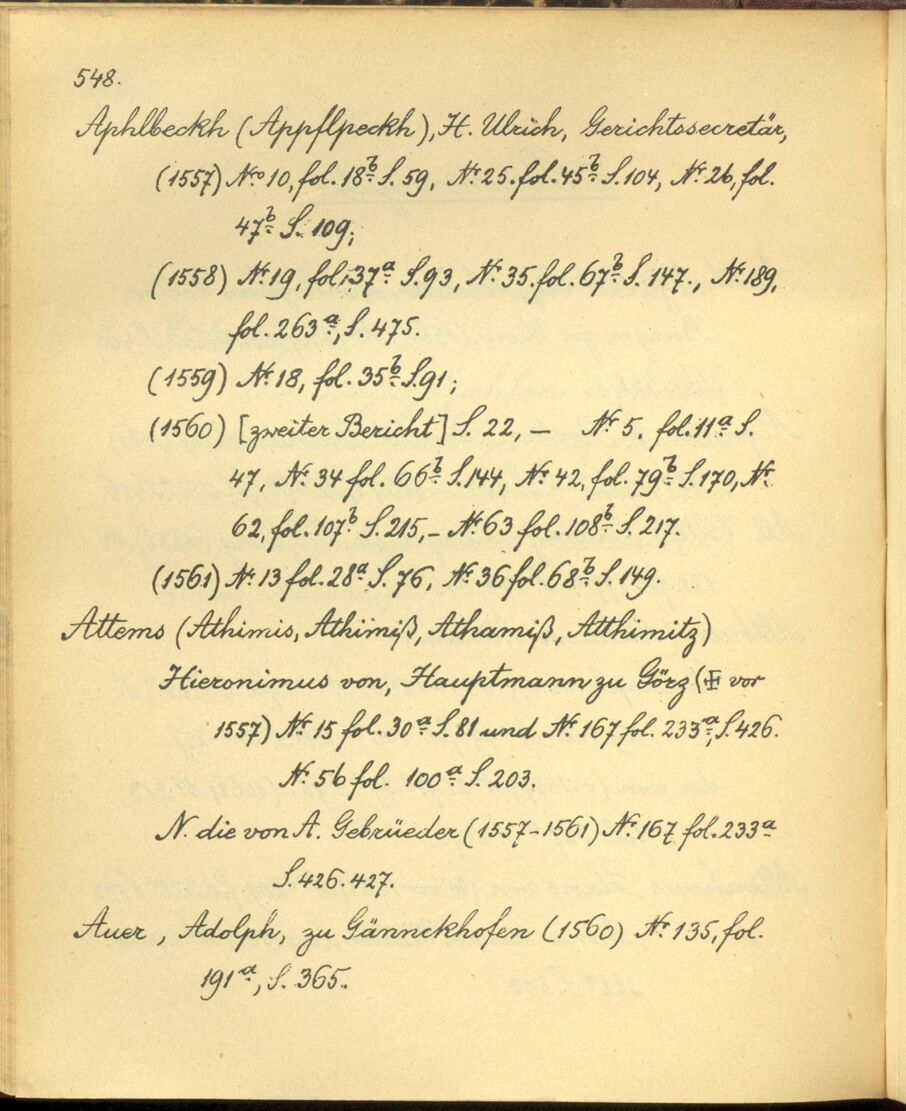 548.
Aphlbeckh (Appflpeckh), H. Ulrich, Gerichtssecretär,
(1557) Nro 10, fol. 18b S. 59, Nr. 25. fol. 45b S. 104, Nr. 26, fol.
47b S. 109;
(1558) Nr. 19, fol. 37a S. 93, Nr. 35. fol. 67b S. 147., Nr. 189,
fol. 263a, S. 475.
(1559) Nr. 18, fol. 35b S. 91;
(1560) [zweiter Bericht] S. 22, — Nr. 5. fol. 11a S.
47, Nr. 34 fol. 66b S. 144, Nr. 42, fol. 79b S. 170, Nr.
62, fol. 107b S. 215, — Nr. 63 fol. 108b S. 217.
(1561) Nr. 13 fol. 28a S. 76, Nr. 36 fol. 68b S. 149.
Attems (Athimis, Athimiß, Athamiß, Atthimitz)
Hieronimus von, Hauptmann zu Görz (✠ vor
1557) Nr. 15 fol. 30a S. 81 und Nr. 167 fol. 233a, S. 426.
Nr. 56 fol. 100a S. 203.
N. die von A. Gebrüeder (1557–1561) Nr. 167 fol. 233a
S. 426. 427.
Auer, Adolph, zu Gännckhofen (1560) Nr. 135, fol.
191a, S. 365.